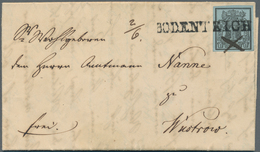 2/6
BODENTEICH
Sr Wohlgeboren
den Herrn Amtmann Nanne
zu
frei. Wustrow